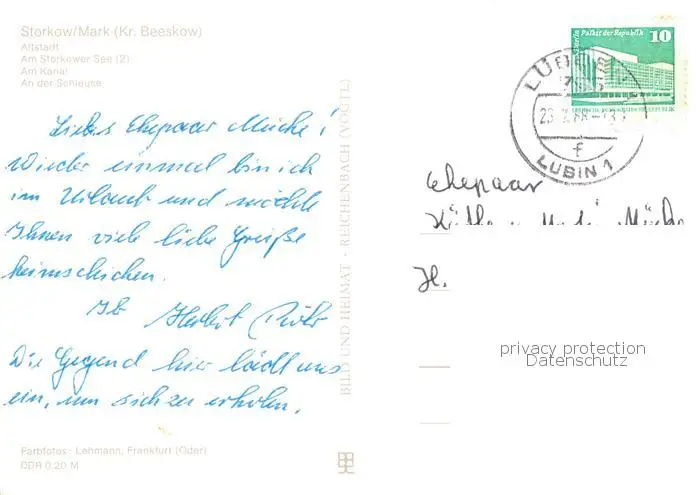 Storkow/Mark (Kr. Beeskow)
Altstadt
Am Storkower See (2)
Am Kanal
An der Schleuse
Liebes Ehepaar Mücke!
Wieder einmal bin ich
im Urlaub und möchte
Ihnen viele liebe Grüße
heimschicken.
Ihr Herbert
Die Gegend hier lädt uns
ein, um sich zu erholen.
Farbfotos: Lehmann, Frankfurt (Oder)
DDR 0,20 M
BILD UND HEIMAT · REICHENBACH (VOGTL)
Berlin Palast der Republik 10
LÜBBEN
LUBIN 1
f
Ehepaar
Mücke
H.
privacy protection
Datenschutz